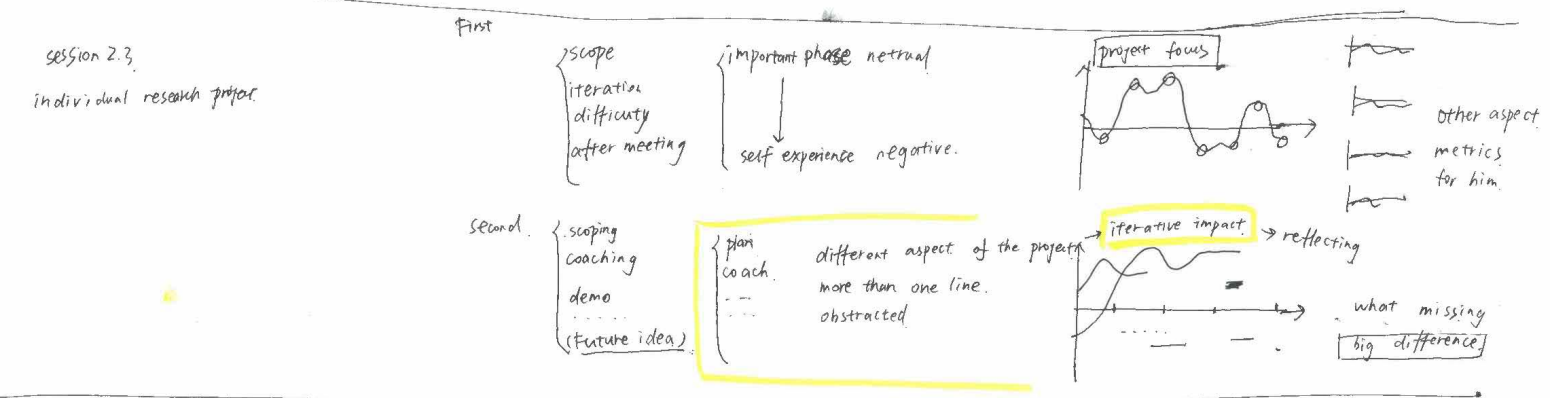 First
session 2.3
individual research projec
scope
iteration
difficuty
after meeting
important phase netrual
self experience negative.
project focus
other aspect
metrics
for him
second.
scoping
coaching
demo
......
(Future idea)
plan
coach.
different aspect of the project
more than one line.
obstracted
→ iterative impact → reflecting
what missing
big difference.